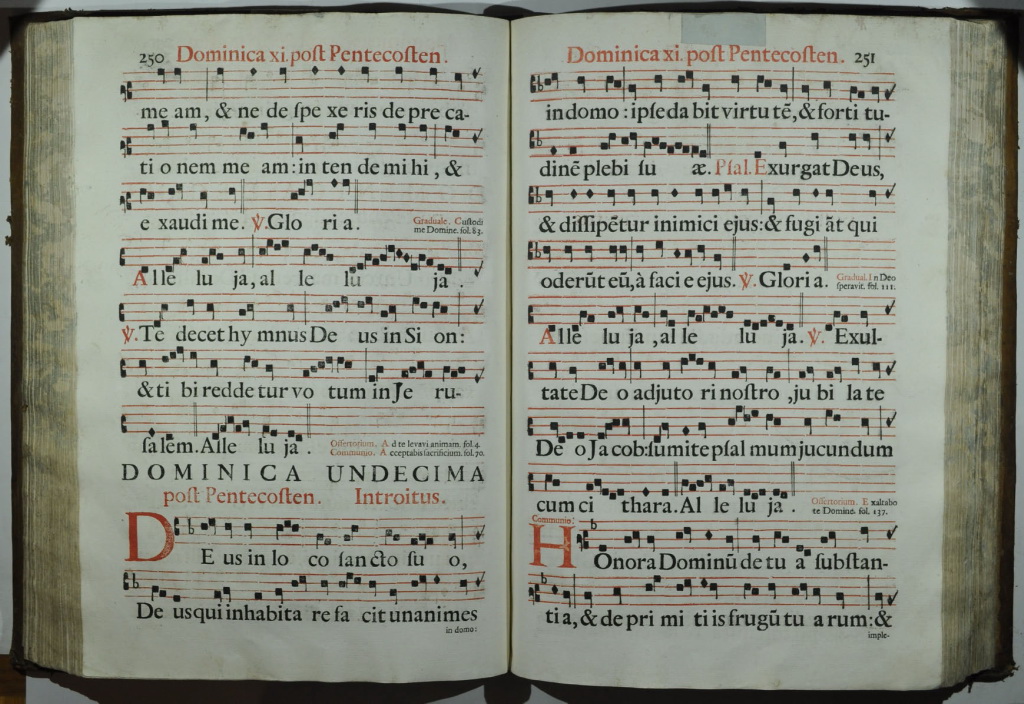 250 Dominica xi. poſt Pentecoſten.
me am, & ne de ſpe xe ris de pre ca-
ti o nem me am: in ten de mi hi, &
e xaudi me. ℣. Glo ri a.
Graduale. Cuſtodi
me Domine. fol. 83.
Alle lu ja, al le lu ja.
℣. Te decet hy mnus De us in Si on:
& ti bi reddetur vo tum in Je ru-
ſalem. Alle lu ja.
Offertorium. Ad te levavi animam. fol. 4.
Communio. Acceptabis ſacrificium. fol. 70.
DOMINICA UNDECIMA
poſt Pentecoſten. Introitus.
DEus in lo co ſancto ſu o,
De us qui inhabita re fa cit unanimes
in domo:
Dominica xi. poſt Pentecoſten. 251
in domo: ipſe da bit virtu tē, & forti tu-
dinē plebi ſu æ. Pſal. Exurgat Deus,
& diſſipētur inimici ejus: & fugi āt qui
oderūt eū, à faci e ejus. ℣. Glori a.
Gradual. In Deo
ſperavit. fol. 111.
Alle lu ja, alle lu ja. ℣. Exul-
tate De o adjuto ri noſtro, ju bi la te
De o Jacob: ſumite pſal mum jucundum
cum ci thara. Al le lu ja.
Offertorium. Exaltabo
te Domine. fol. 137.
Communio.
HOnora Dominū de tu a ſubſtan-
ti a, & de pri mi ti is frugū tu arum: &
imple-